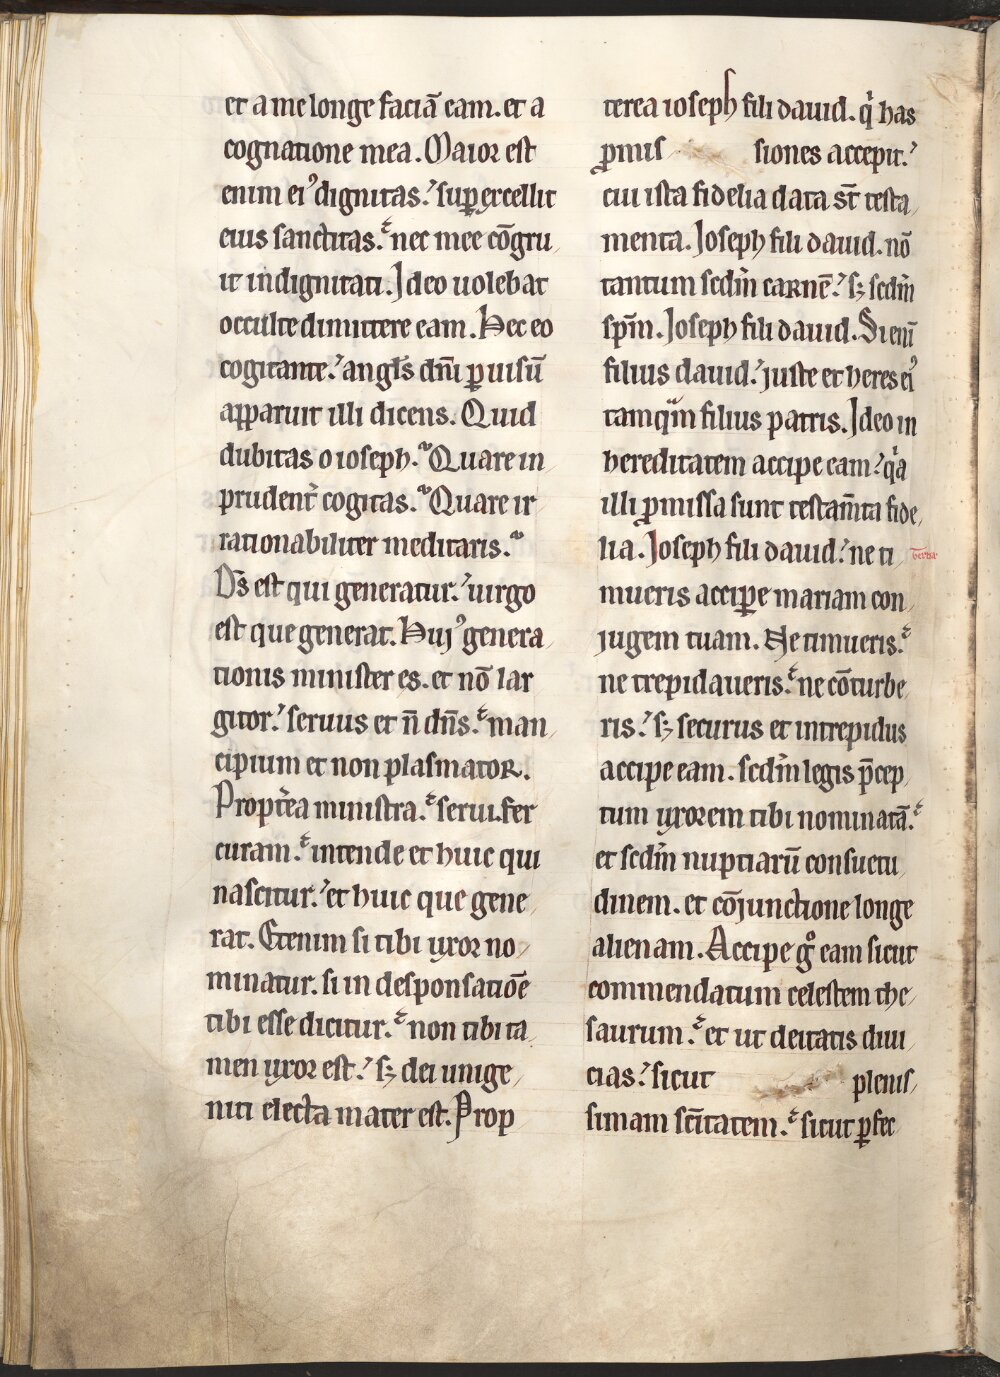 et a me longe faciā eam. et a
cognatione mea. Maior est
enim ei᾽ dignitas. sup̱excellit
eius sanctitas. nec mee cōgru
it indignitati. Ideo uolebat
occulte dimittere eam. Hec eo
cogitante. angl̄s dn̄i p̱ uisū
apparuit illi dicens. Quid
dubitas o ioseph. Quare in
prudent̄ cogitas. Quare ir
rationabiliter meditaris.
Ds̄ est qui generatur. uirgo
est que generat. Huj᾽ genera
tionis minister es. et nō lar
gitor. seruus et n̄ dn̄s. man
cipium et non plasmator.
Propt̄ea ministra. serui. fer
curam. intende et huic qui
nascitur. et huic que gene
rat. Etenim si tibi uxor no
minatur. si in desponsatiōe
tibi esse dicitur. non tibi ta
men uxor est. sꝫ dei unige
niti electa mater est. Prop
terea ioseph fili dauid. q̄ has
ꝓmis siones accepit.
cui ista fidelia data st̄ testa
menta. Ioseph fili dauid. nō
tantum scdm̄ carnē. sꝫ scdm̄
sp̄m. Ioseph fili dauid. Si eni᷎
filius dauid. juste et heres ei᾽
tamqͣm filius patris. Ideo in
hereditatem accipe eam. qͥa
illi ꝓmissa sunt testam̄ta fide
lia. Ioseph fili dauid. ne ti
mueris accip̱e mariam con
jugem tuam. Ne timueris.
ne trepidaueris. ne cōturbe
ris. sꝫ securus et intrepidus
accipe eam. scdm̄ legis p̄cep
tum uxorem tibi nominatā.
et scdm̄ nuptiarū consuetu
dinem. et cōjunctione longe
alienam. Accipe gͦ eam sicut
commendatum celestem the
saurum. et ut deitatis diui
cias. sicut plenis
simam sc̄itatem. sicut p̱fec